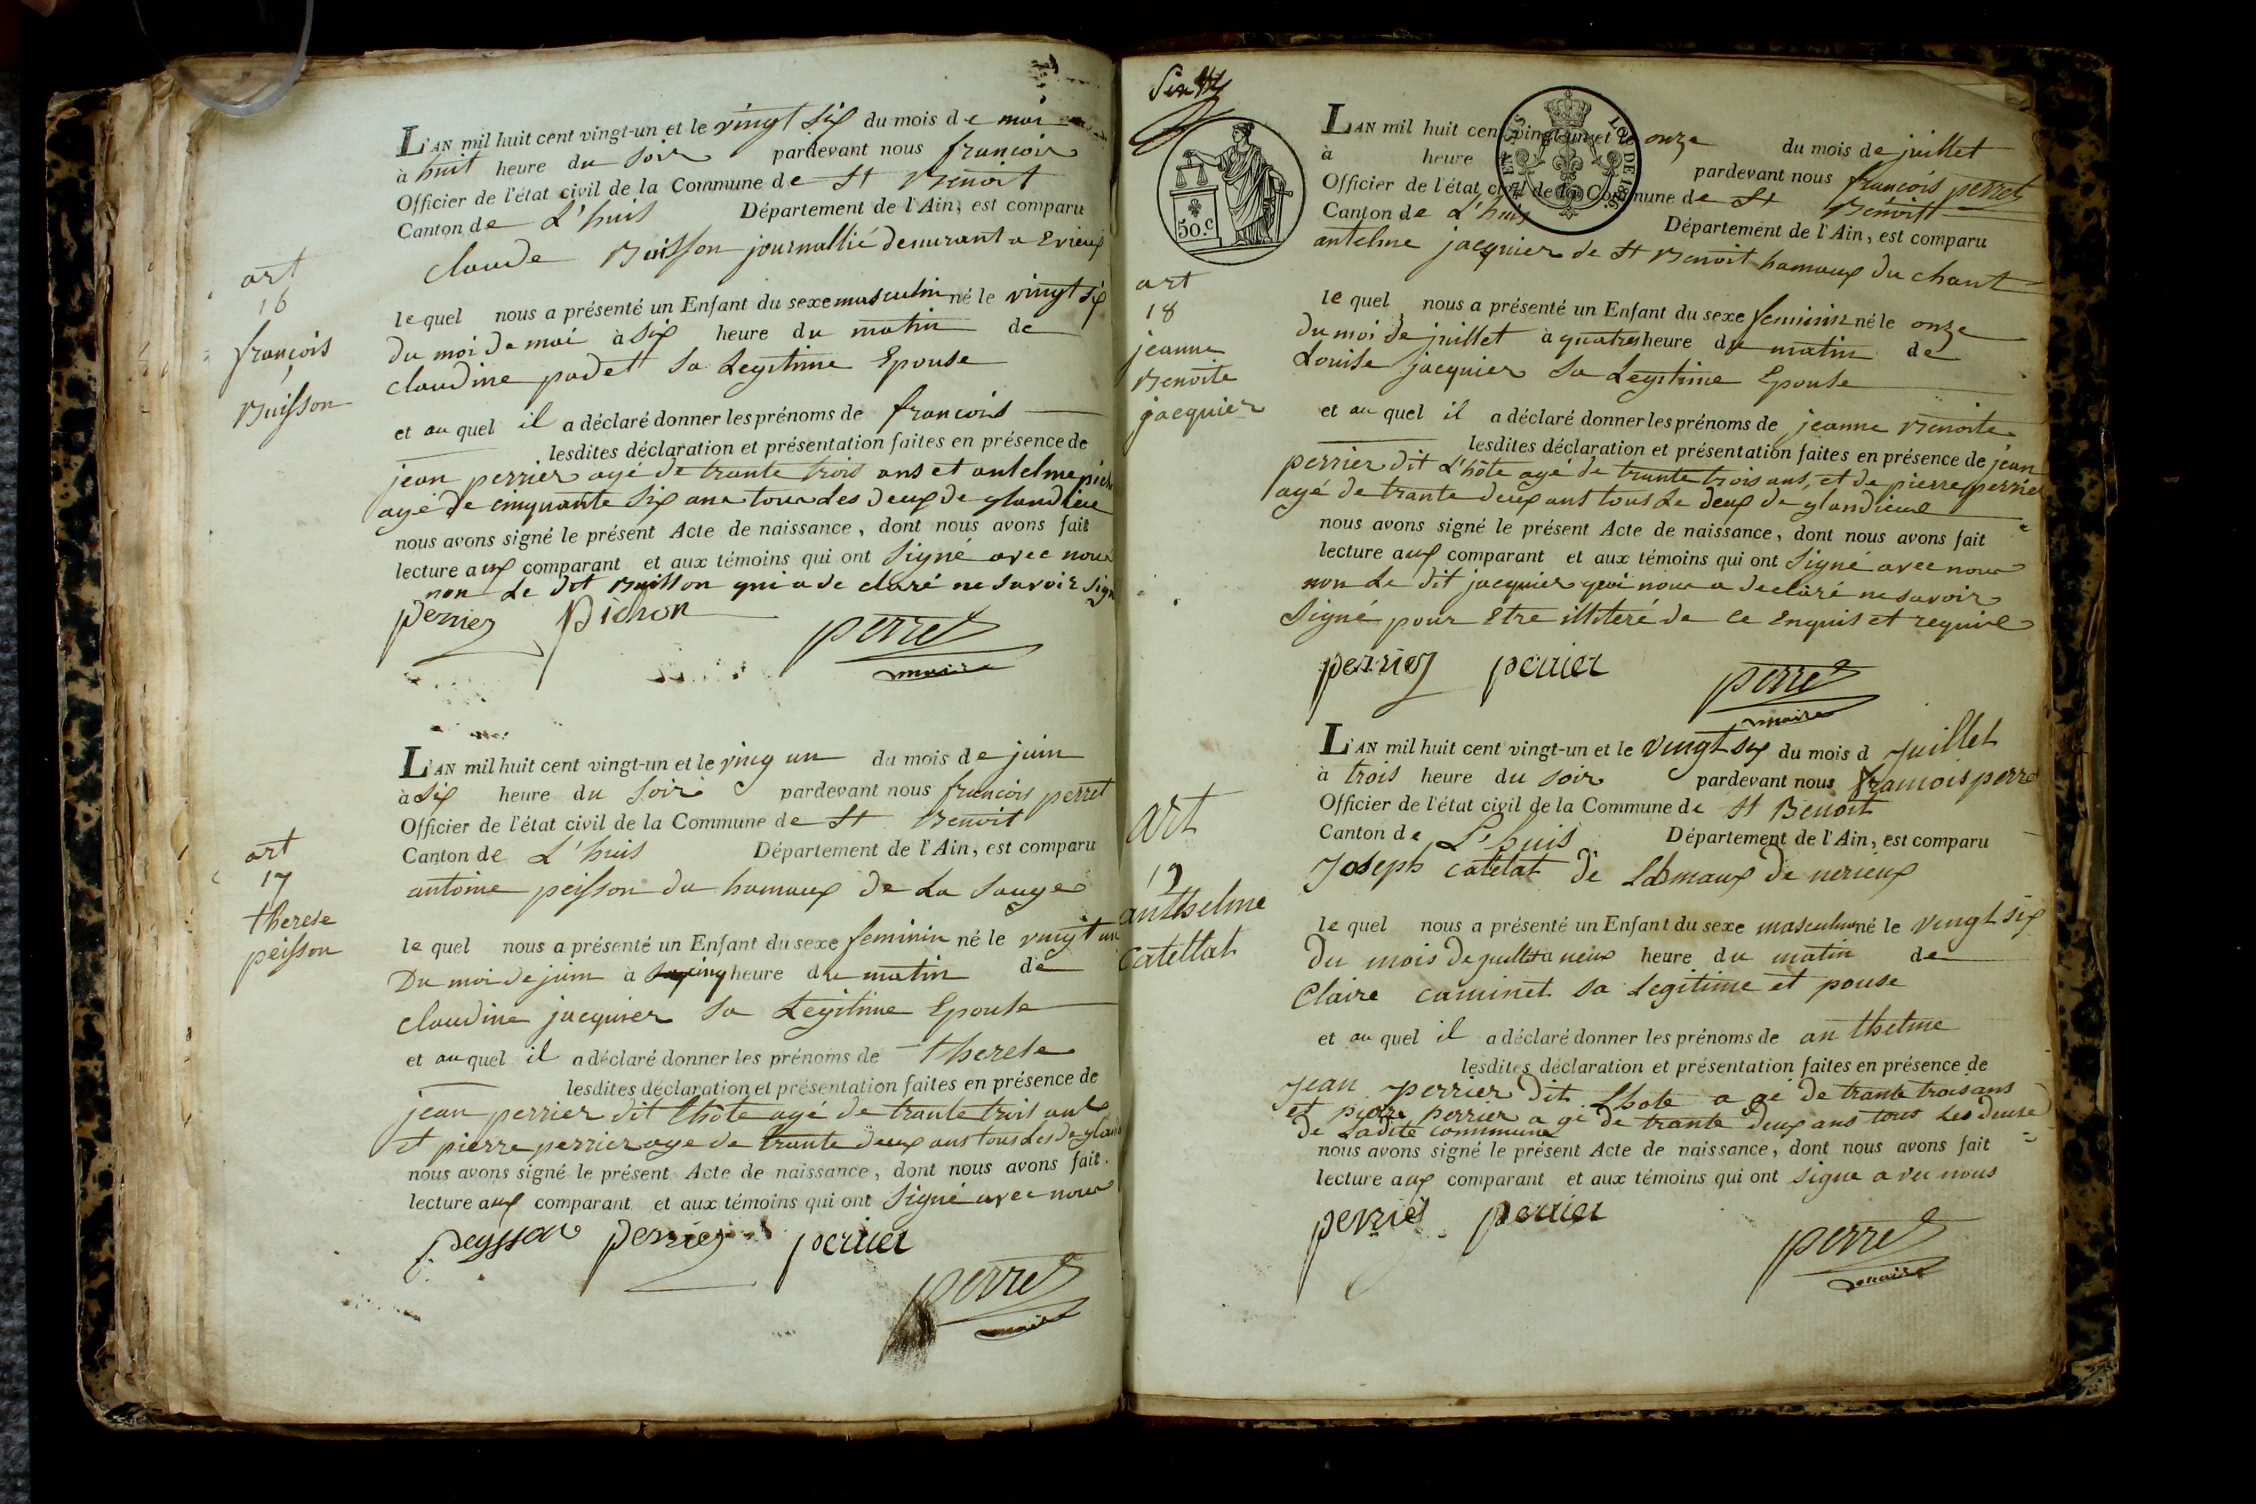 L'AN mil huit cent vingt-un et le vingt six du mois de mai
à huit heure du soir pardevant nous francois
Officier de l'état civil de la Commune de St Benoit
Canton de L'huis Département de l'Ain, est comparu
claude Buisson journallié demurant a Evieux
art
16
françois
Buisson
le quel nous a présenté un Enfant du sexe masculin né le vingt six
du moi de mai à six heure du matin de
claudine padet sa Legitime Epouse
et au quel il a déclaré donner les prénoms de francois
lesdites déclaration et présentation faites en présence de
jean perrier agé de trante trois ans et antelme
agé de cinquante six ans tous Les deux de glandieu
nous avons signé le présent Acte de naissance, dont nous avons fait
lecture aux comparant et aux témoins qui ont Signé avec nous
non Le dit Buisson qui a de claré ne savoir sign
perrier pichon
perret
maire
L'AN mil huit cent vingt-un et le ving un du mois de juin
à six heure du soir pardevant nous francois perret
Officier de l'état civil de la Commune de St Benoit
Canton de L'huis Département de l'Ain, est comparu
antoine peisson du hamaux de La Sauge
art
17
therese
peisson
le quel nous a présenté un Enfant du sexe feminin né le vingt un
Du moi de juin à cinq heure du matin de
claudine jacquier sa Legitime Epouse
et au quel il a déclaré donner les prénoms de therese
lesdites déclaration et présentation faites en présence de
jean perrier dit l'hôte agé de trante trois ans
et pierre perrier age de trante deux ans tous Les de gland
nous avons signé le présent Acte de naissance, dont nous avons fait
lecture aux comparant et aux témoins qui ont Signé avec nous
peysson perrier perrier
perret
maire
50.c
EN SUS LOI DE 1816.
L'AN mil huit cent vingt-un et le onze du mois de juillet
à heure pardevant nous françois perret
Officier de l'état civil de la Commune de St Benoit
Canton de L'huis Département de l'Ain, est comparu
antelme jacquier de St Benoit hamaux du chant
art
18
jeanne
Benoite
jacquier
le quel nous a présenté un Enfant du sexe feminin né le onze
du moi de juillet à quatres heure du matin de
Louise jacquier sa Legitime Epouse
et au quel il a déclaré donner les prénoms de jeanne Benoite
lesdites déclaration et présentation faites en présence de jean
perrier dit L'hôte agé de trante trois ans, et de pierre perrier
agé de trante deux ans tous Le deux de glandieu
nous avons signé le présent Acte de naissance, dont nous avons fait
lecture aux comparant et aux témoins qui ont Signé avec nous
non Le dit jacquier qui nous a declaré ne savoir
Signé pour Etre illiteré de Ce Enquis et requis
perrier perrier
perret
maire
L'AN mil huit cent vingt-un et le vingt six du mois d juillet
à trois heure du soir pardevant nous francois perret
Officier de l'état civil de la Commune de St Benoit
Canton de L'huis Département de l'Ain, est comparu
Joseph catelat de nerieux
art
19
anthelme
catellat
le quel nous a présenté un Enfant du sexe masculin né le vingt six
du mois de juillet a heure du matin de
Claire caminet sa Legitime et pouse
et au quel il a déclaré donner les prénoms de an thelme
lesdites déclaration et présentation faites en présence de
Jean perrier dit Lhote a gé de trante trois ans
et pierre perrier a gé de trante deux ans tous Les deuse
de Ladite commune
nous avons signé le présent Acte de naissance, dont nous avons fait
lecture aux comparant et aux témoins qui ont signe a vec nous
perrier perrier
perret
maire